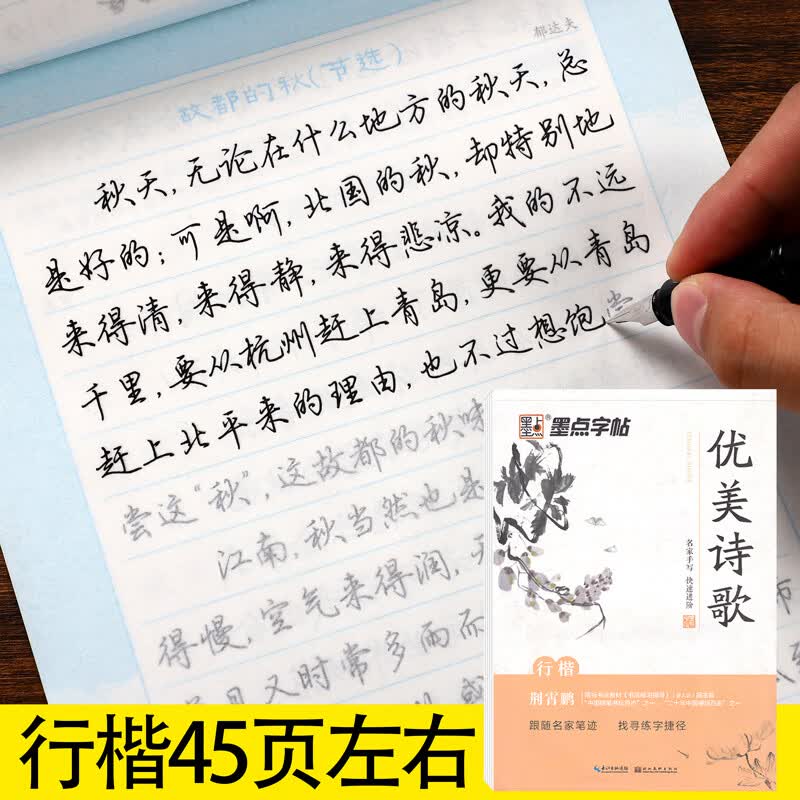 郁达夫
故都的秋(节选)
秋天,无论在什么地方的秋天,总
是好的;可是啊,北国的秋,却特别地
来得清,来得静,来得悲凉。我的不远
千里,要从杭州赶上青岛,更要从青岛
赶上北平来的理由,也不过想饱尝
尝这“秋”,这故都的秋味
江南,秋当然也是
得慢,空气来得润,天
又时常多雨而
墨点®墨点字帖
优美诗歌
名家手写 快速进阶
行楷
荆霄鹏
跟随名家笔迹 找寻练字捷径
长江出版传媒 湖北美术出版社
行楷45页左右